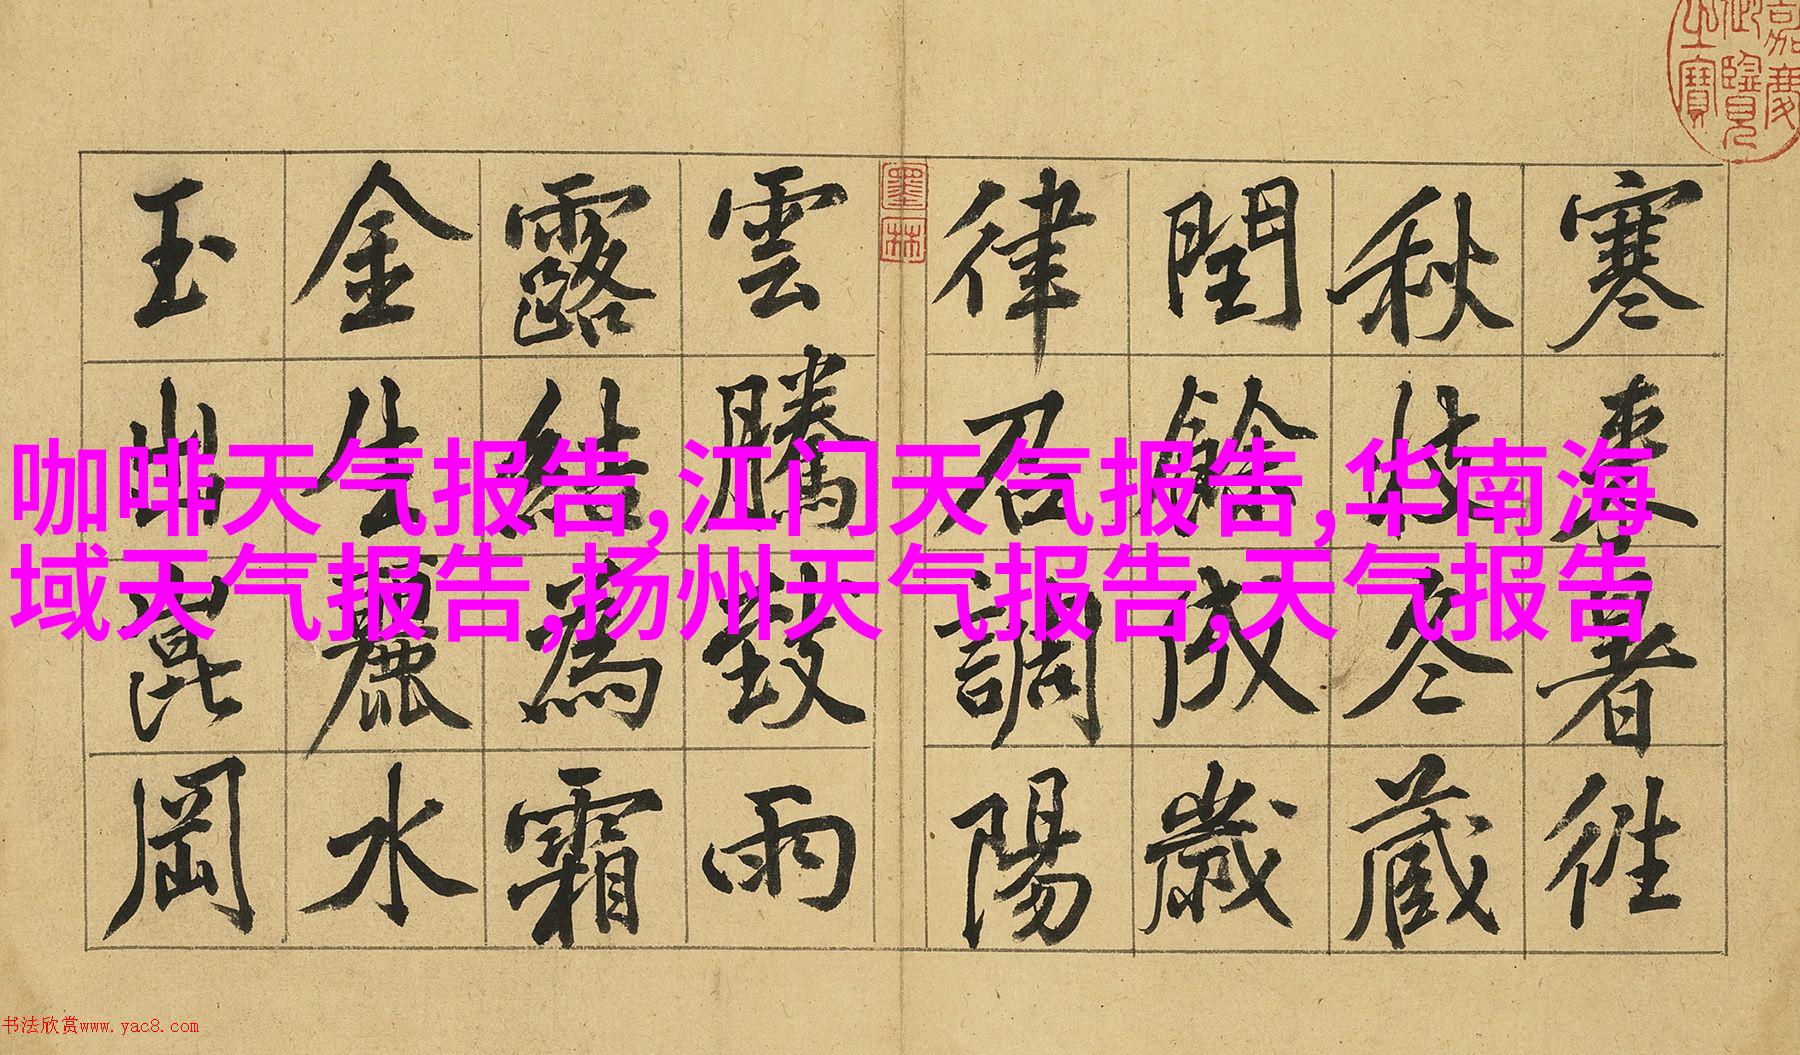 嘉慶
御覽
之寶
寒來暑往
秋收冬藏
閏餘成歲
律召調陽
墨林
雲騰致雨
露結為霜
金生麗水
玉出崑岡
咖啡天气报告,江门天气报告,华南海
域天气报告,扬州天气报告,天气报告
书法欣赏www.yac8.com